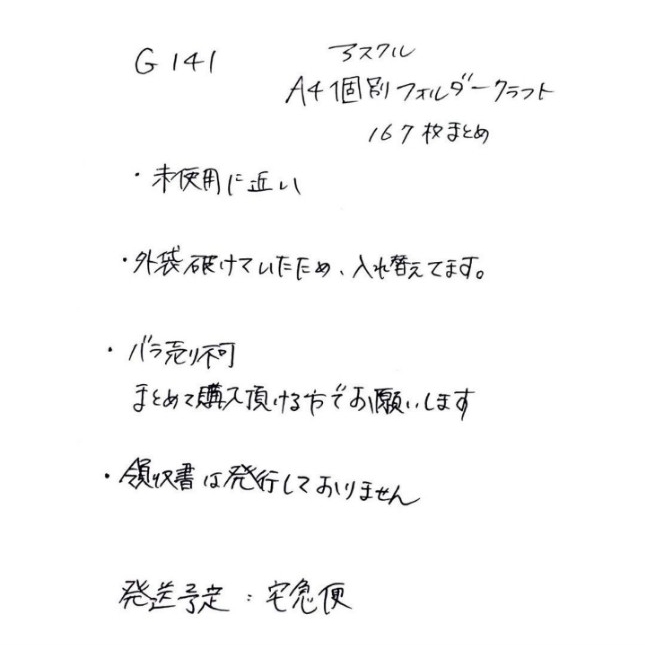 G 141
アスクル
A4個別フォルダークラフト
167枚まとめ
・未使用に近い
・外袋破けていたため、入れ替えてます。
・バラ売り不可
まとめて購入頂ける方でお願いします
・領収書は発行しておりません
発送予定：宅急便